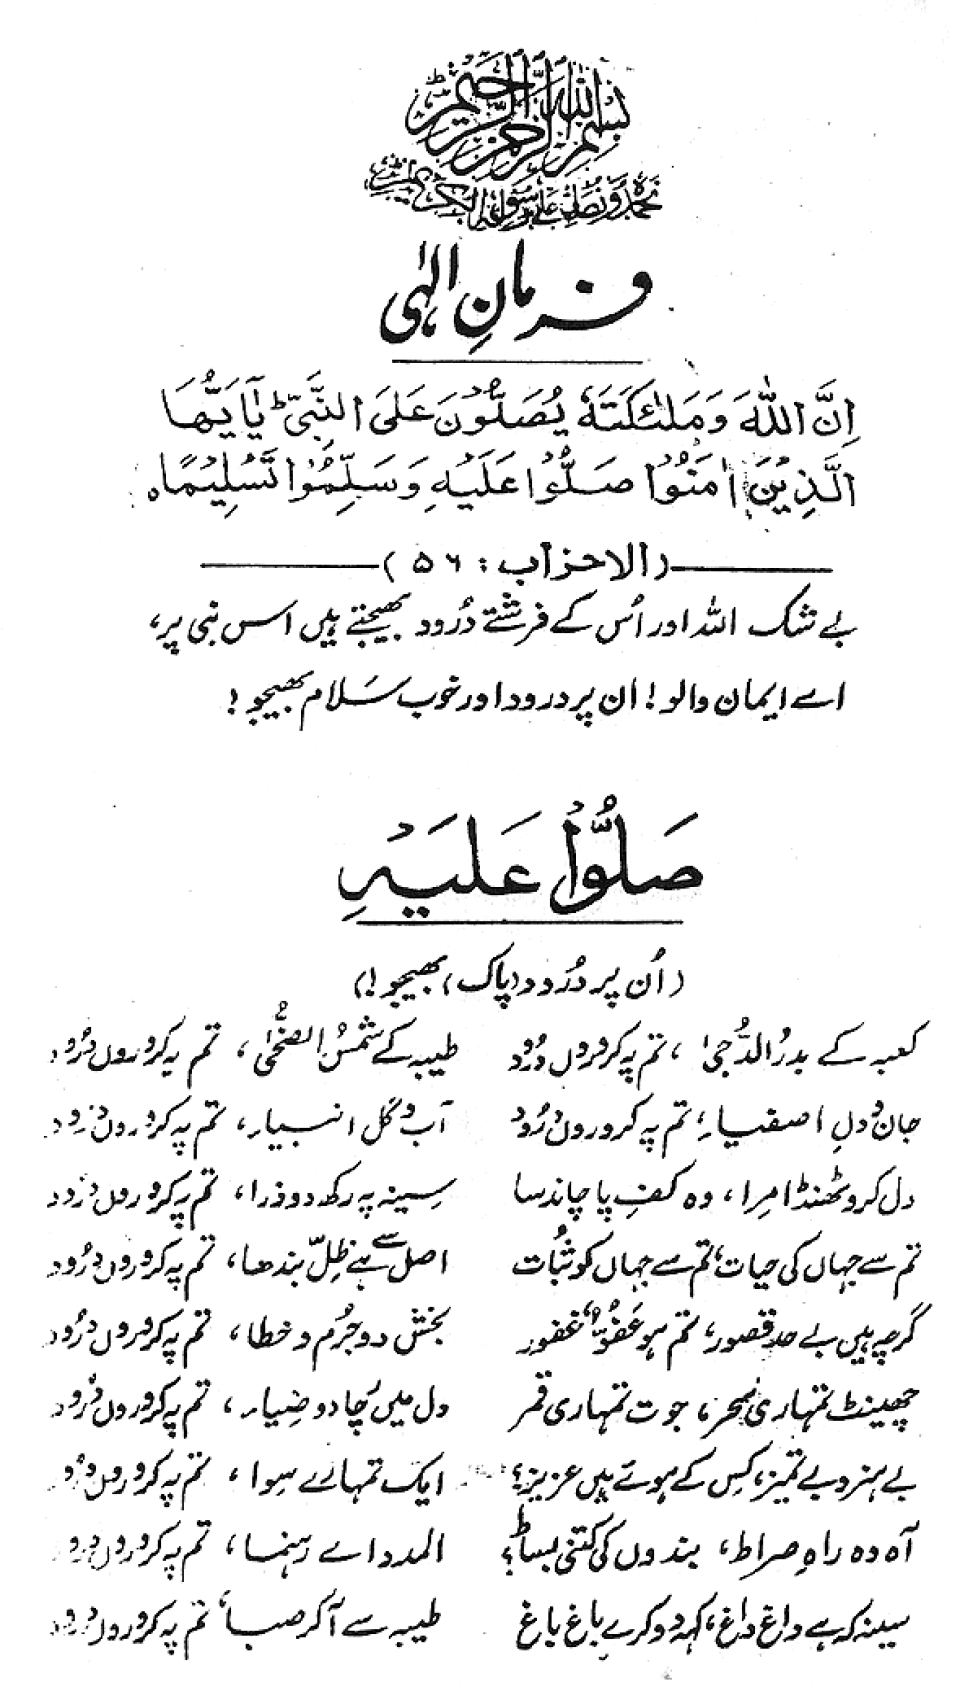 بسم الله الرحمن الرحیم
نحمده ونصلی علی رسوله الکریم
فرمانِ الٰہی
اِنَّ اللّٰهَ وَمَلٰٓئِكَتَهٗ يُصَلُّوْنَ عَلَى النَّبِیِّ ؕ يٰۤاَيُّهَا
الَّذِيْنَ اٰمَنُوْا صَلُّوْا عَلَيْهِ وَسَلِّمُوْا تَسْلِيْمًا ○
(الاحزاب : ۵۶)
بے شک اللہ اور اُس کے فرشتے دُرود بھیجتے ہیں اس نبی پر،
اے ایمان والو! ان پر درود اور خوب سَلام بھیجو!
صَلُّوْا عَلَيْهِ
(اُن پر دُرود (پاک) بھیجو!)
کعبہ کے بدرُ الدُّجیٰ ، تم پہ کروروں دُرود طیبہ کے شمسُ الضُّحیٰ ، تم پہ کروروں دُرود
جان و دلِ اصفیاء، تم پہ کروروں دُرود آب و گلِ انبیاء، تم پہ کروروں دُرود
دل کرو ٹھنڈا مِرا، وہ کفِ پا چاند سا سینہ پہ رکھ دو ذرا، تم پہ کروروں دُرود
تم سے جہاں کی حیات، تم سے جہاں کو ثُبات اصل سے ہے ظِلّ بندھا، تم پہ کروروں دُرود
گرچہ ہیں بے حد قصور، تم ہو عَفُوّ و غفور بخش دو جُرم و خطا، تم پہ کروروں دُرود
چھینٹ تمہاری سحر، جوت تمہاری قمر دل میں رَچا دو ضِیاء، تم پہ کروروں دُرود
بے ہنر و بے تمیز، کِس کے ہوئے ہیں عزیز؟ ایک تمہارے سِوا، تم پہ کروروں دُرود
آہ وہ راہِ صراط، بندوں کی کتنی بساط؟ المدد اے رہنما، تم پہ کروروں دُرود
سینہ کہ ہے داغ داغ، کہہ دو کرے باغ باغ طیبہ سے آ کر صبا، تم پہ کروروں دُرود